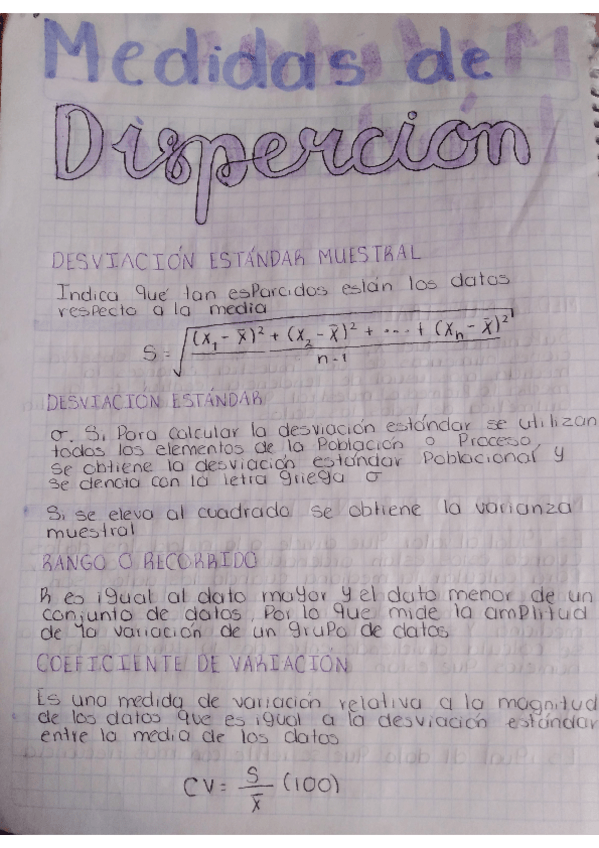 Medidas de
Disperción
DESVIACIÓN ESTÁNDAR MUESTRAL
Indica que tan esparcidos están los datos
respecto a la media
S = √((X₁ - X̄)² + (X₂ - X̄)² + ... + (Xₙ - X̄)² / n-1)
DESVIACIÓN ESTÁNDAR
σ. Si Para calcular la desviación estándar se utilizan
todos los elementos de la Población o Proceso,
se obtiene la desviación estándar Poblacional y
se denota con la letra griega σ
Si se eleva al cuadrado se obtiene la varianza
muestral
RANGO O RECORRIDO
R es igual al dato mayor y el dato menor de un
conjunto de datos, Por lo que mide la amplitud
de la variación de un grupo de datos
COEFICIENTE DE VARIACIÓN
Es una medida de variación relativa a la magnitud
de los datos que es igual a la desviación estándar
entre la media de los datos
CV = S/X̄ (100)